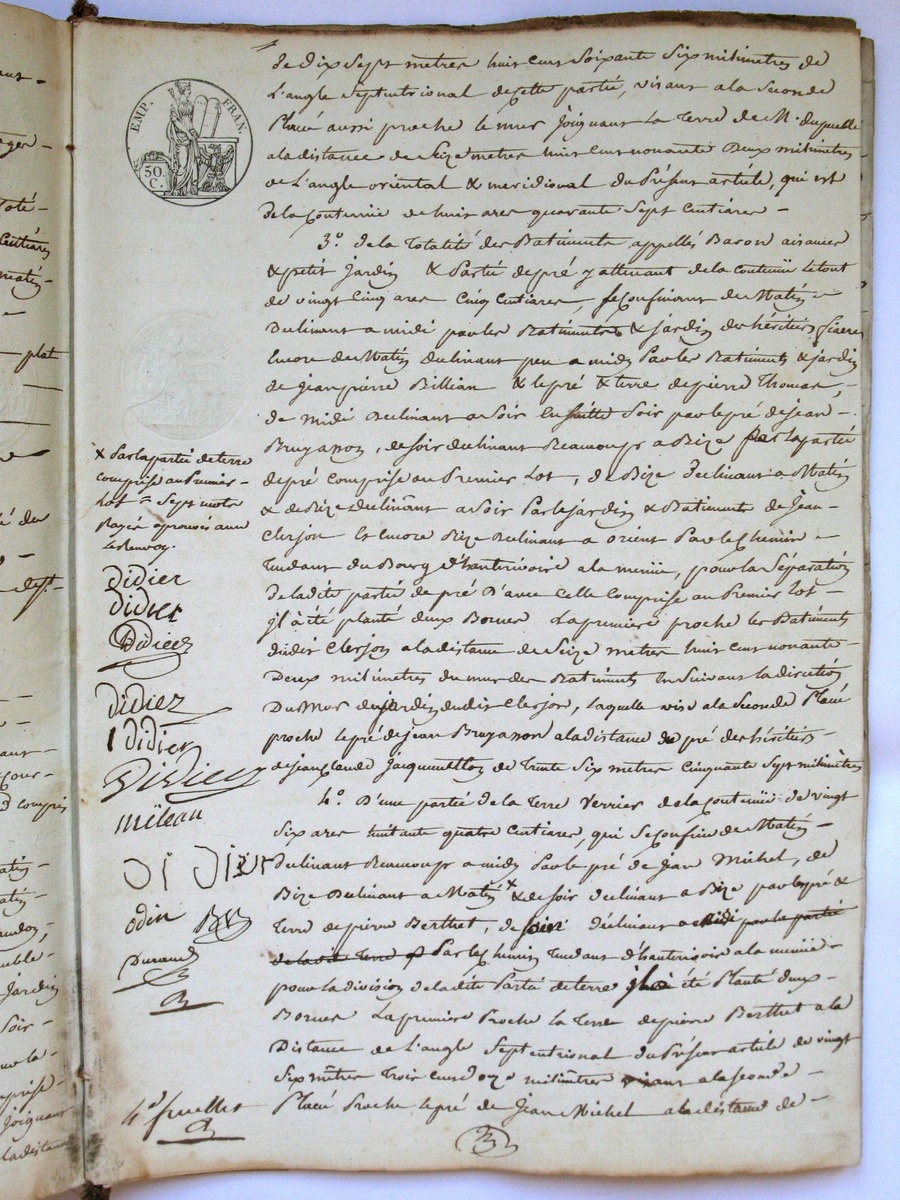 EMP. FRAN.
50. C.
de dix sept metres huit cens soixante six milimetres de
L'angle septentrional de cette partie, visant a la seconde
Placé aussi proche le mur joignant la terre de M. dupuble
a la distance de seize metres huit cens nonante Deux milimetres
de L'angle oriental & meridional du Présent article, qui est
de la Contenüe de huit ares quarante sept Centiares -
3.° de la Totalité des Batiments appellés Baron aisances
& petit jardin & Partie de pré y attenant de la contenüe le tout
de vingt cinq ares cinq centiares, se confinant du Matin -
Declinant a midi par les Batiments & jardin des héritiers
Encore du Matin declinant peu a midy Par les Batiments & jardin
de jean pierre Billian & le pré & terre de pierre Thomas,
de midi Declinant a soir Ensuitte soir par le pré de jean -
Bruyanon, de soir declinant Beaucoup a Bize par la partie
de pré comprise au Premier Lot, de Bize declinant a Matin
& de Bize declinant a soir Par le jardin & Batiments de jean -
Clerjon Et encore Bize declinant a orient Par le Chemin -
Tendant du Bourg d'hauterivoire a la meniü, pour la séparation
de la dite partie de pré D'avec celle comprise au Premier Lot -
jl a été planté deux Bornes La premiere proche les Batiments
dudit Clerjon a la distance de seize metres huit cens nonante
Deux milimetres du mur des Batiments En suivant la direction
Du Mur du jardin dudit Clerjon, laquelle vise a la seconde Placé
proche le pré de jean Bruyanon a la distance du pré des héritiers -
de jean Claude jacquemetton de Trente six metres cinquante sept milimètres
4.° D'une partie de la Terre Verrier de la Contenüe de vingt
six ares huitante quatre centiares, qui se confine de Matin -
declinant Beaucoup a midy Par le pré de jean Michel, de
Bize Declinant a Matin & de soir declinant a Bize par les pré &
Terre de pierre Berthet, de soir déclinant a midi par la partie
de la dite Terre x Par le chemin Tendant d'hauterivoire a la meniü -
pour la division de la dite Partie de terre jl a été Planté deux -
Bornes La premiere Proche la Terre de pierre Berthet a la
Distance de L'angle septentrional du Présent article de vingt
six mètres Trois cens onze milimètres visant a la seconde -
Placé Proche le pré de jean Michel a la distance de -
x Par la partie de terre
comprise au Premier -
Lot = sept mots
Rayés aprouvés avec
le Renvoy.
Didier
Didier
Didier
didier
didier
Didier
mileau
DI Dier
odin
Durand
4.e feuillet